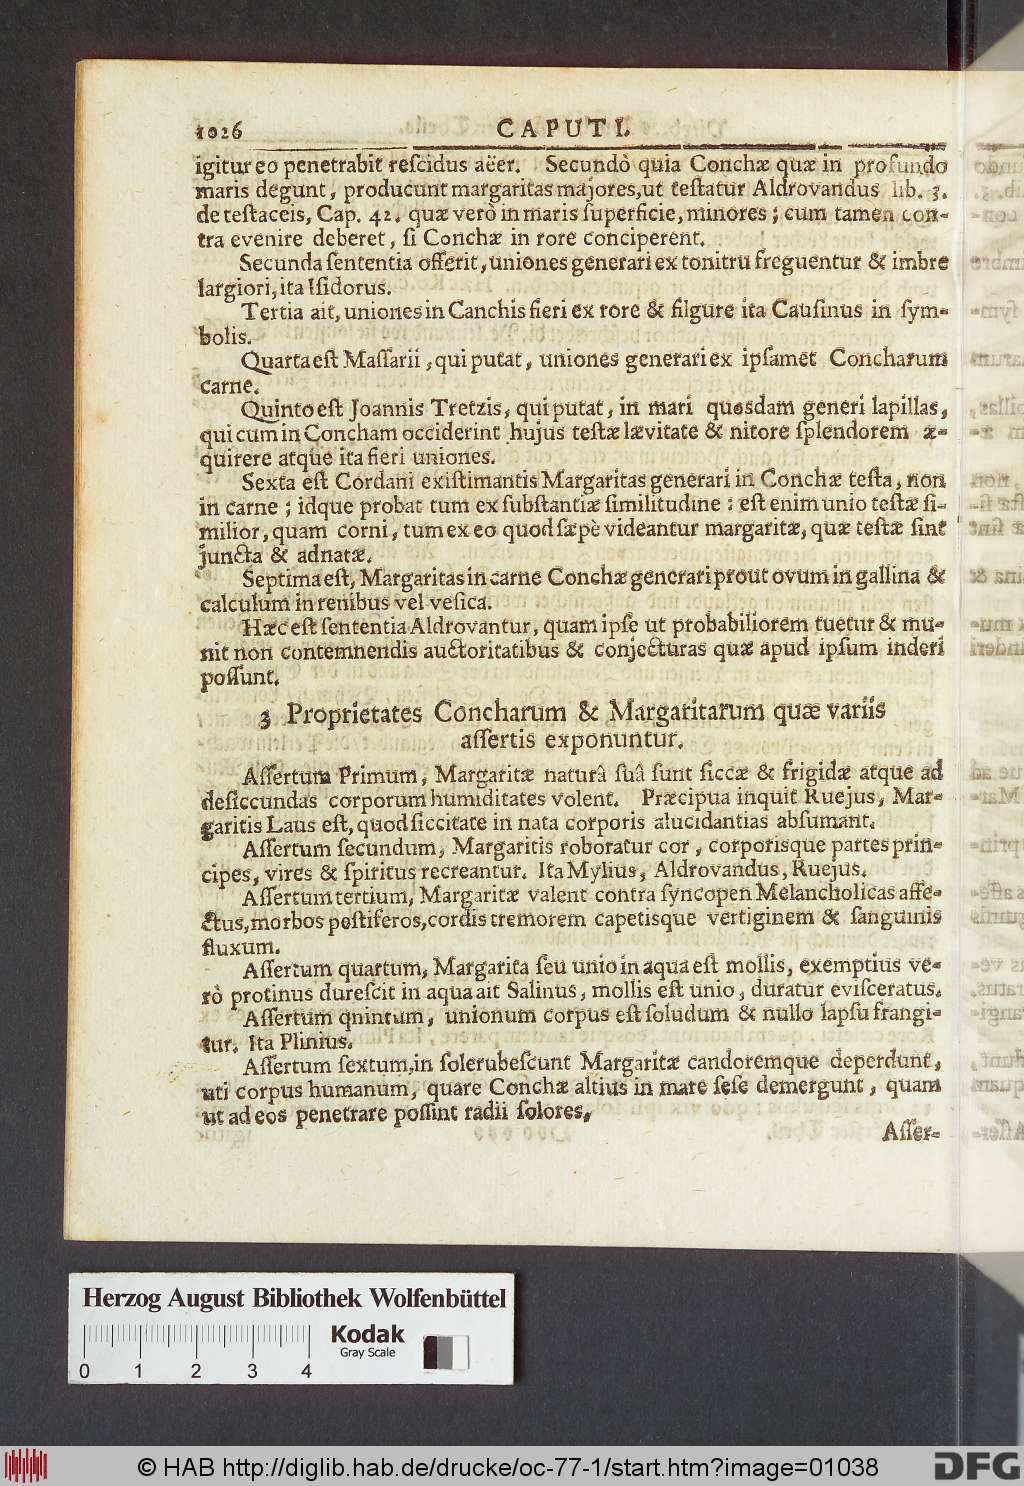 1026 CAPUT I.
igitur eo penetrabit reſcidus aëer. Secundò quia Conchæ quæ in profundo
maris degunt, producunt margaritas majores, ut teſtatur Aldrovandus lib. 3.
de teſtaceis, Cap. 42. quæ verò in maris ſuperficie, minores; cum tamen con-
tra evenire deberet, ſi Conchæ in rore conciperent.
Secunda ſententia offerit, uniones generari ex tonitru freguentur & imbre
largiori, ita Iſidorus.
Tertia ait, uniones in Canchis fieri ex rore & filgure ita Cauſinus in ſym-
bolis.
Quarta eſt Maſſarii, qui putat, uniones generari ex ipſamet Concharum
carne.
Quinto eſt Joannis Tretzis, qui putat, in mari quosdam generi lapillas,
qui cum in Concham occiderint hujus teſtæ lævitate & nitore ſplendorem æ-
quirere atque ita fieri uniones.
Sexta eſt Cordani exiſtimantis Margaritas generari in Conchæ teſta, non
in carne; idque probat tum ex ſubſtantiæ ſimilitudine: eſt enim unio teſtæ ſi-
milior, quam corni, tum ex eo quod ſæpè videantur margaritæ, quæ teſtæ ſint
juncta & adnatæ.
Septima eſt, Margaritas in carne Conchæ generari prout ovum in gallina &
calculum in renibus vel veſica.
Hæc eſt ſententia Aldrovantur, quam ipſe ut probabiliorem tuetur & mu-
nit non contemnendis auctoritatibus & conjecturas quæ apud ipſum inderi
poſſunt.
3 Proprietates Concharum & Margaritarum quæ variis
aſſertis exponuntur.
Aſſertum Primum, Margaritæ naturâ ſuâ ſunt ſiccæ & frigidæ atque ad
deſiccundas corporum humiditates volent. Præcipua inquit Ruejus, Mar-
garitis Laus eſt, quod ſiccitate in nata corporis alucidantias abſumant.
Aſſertum ſecundum, Margaritis roboratur cor, corporisque partes prin-
cipes, vires & ſpiritus recreantur. Ita Mylius, Aldrovandus, Ruejus.
Aſſertum tertium, Margaritæ valent contra ſyncopen Melancholicas affe-
ctus, morbos peſtiferos, cordis tremorem capetisque vertiginem & ſanguinis
fluxum.
Aſſertum quartum, Margarita ſeu unio in aqua eſt mollis, exemptius ve-
rò protinus dureſcit in aqua ait Salinus, mollis eſt unio, duratur eviſceratus.
Aſſertum qnintum, unionum corpus eſt ſoludum & nullo lapſu frangi-
tur. Ita Plinius.
Aſſertum ſextum, in ſolerubeſcunt Margaritæ candoremque deperdunt,
uti corpus humanum, quare Conchæ altius in mare ſeſe demergunt, quam
ut ad eos penetrare poſſint radii ſolores.
Aſſer-
Herzog August Bibliothek Wolfenbüttel
Kodak
Gray Scale
0 1 2 3 4
© HAB http://diglib.hab.de/drucke/oc-77-1/start.htm?image=01038
DFG